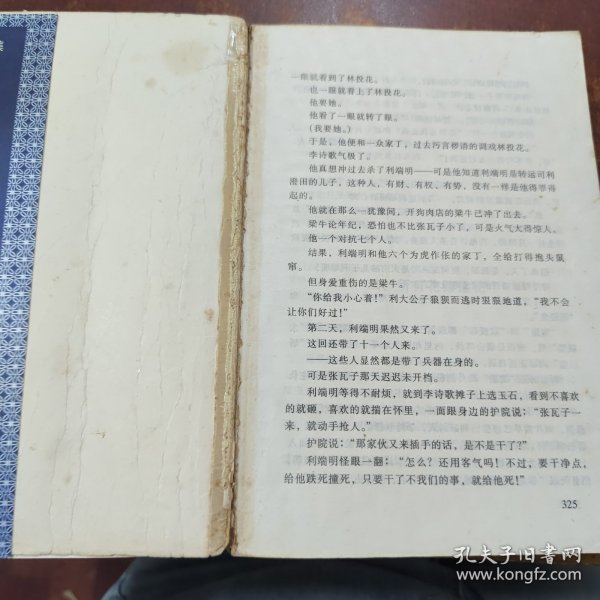 一眼就看到了林投花。
也一眼就看上了林投花。
他要她。
他看了一眼就转了眼。
(我要她。)
于是,他便和一众家丁,过去污言秽语的调戏林投花。
李诗歌气极了。
他真想冲过去杀了利端明——可是他知道利端明是转运司利
澄田的儿子,这种人,有财、有权、有势,没有一样是他得罪得
起的。
他就在那么一犹豫间,开狗肉店的梁牛已冲了出去。
梁牛论年纪,恐怕也不比张瓦子小了,可是火气大得惊人。
他一个对抗七个人。
结果,利端明和他六个为虎作伥的家丁,全给打得抱头鼠
窜。
但身受重伤的是梁牛。
“你给我小心着!”利大公子狼狈而逃时狠狠地道,“我不会
让你们好过!”
第二天,利端明果然又来了。
这回还带了十一个人来。
——这些人显然都是带了兵器在身的。
可是张瓦子那天迟迟未开档。
利端明等得不耐烦,就到李诗歌摊子上选玉石,看到不喜欢
的就砸,喜欢的就揣在怀里,一面跟身边的护院说:“张瓦子一
来,就动手抢人。”
护院说:“那家伙又来插手的话,是不是干了?”
利端明怪眼一翻:“怎么?还用客气吗!不过,要干净点,
给他跌死撞死,只要干了不我们的事,就给他死!”
325
孔夫子旧书网
www.kongfz.com